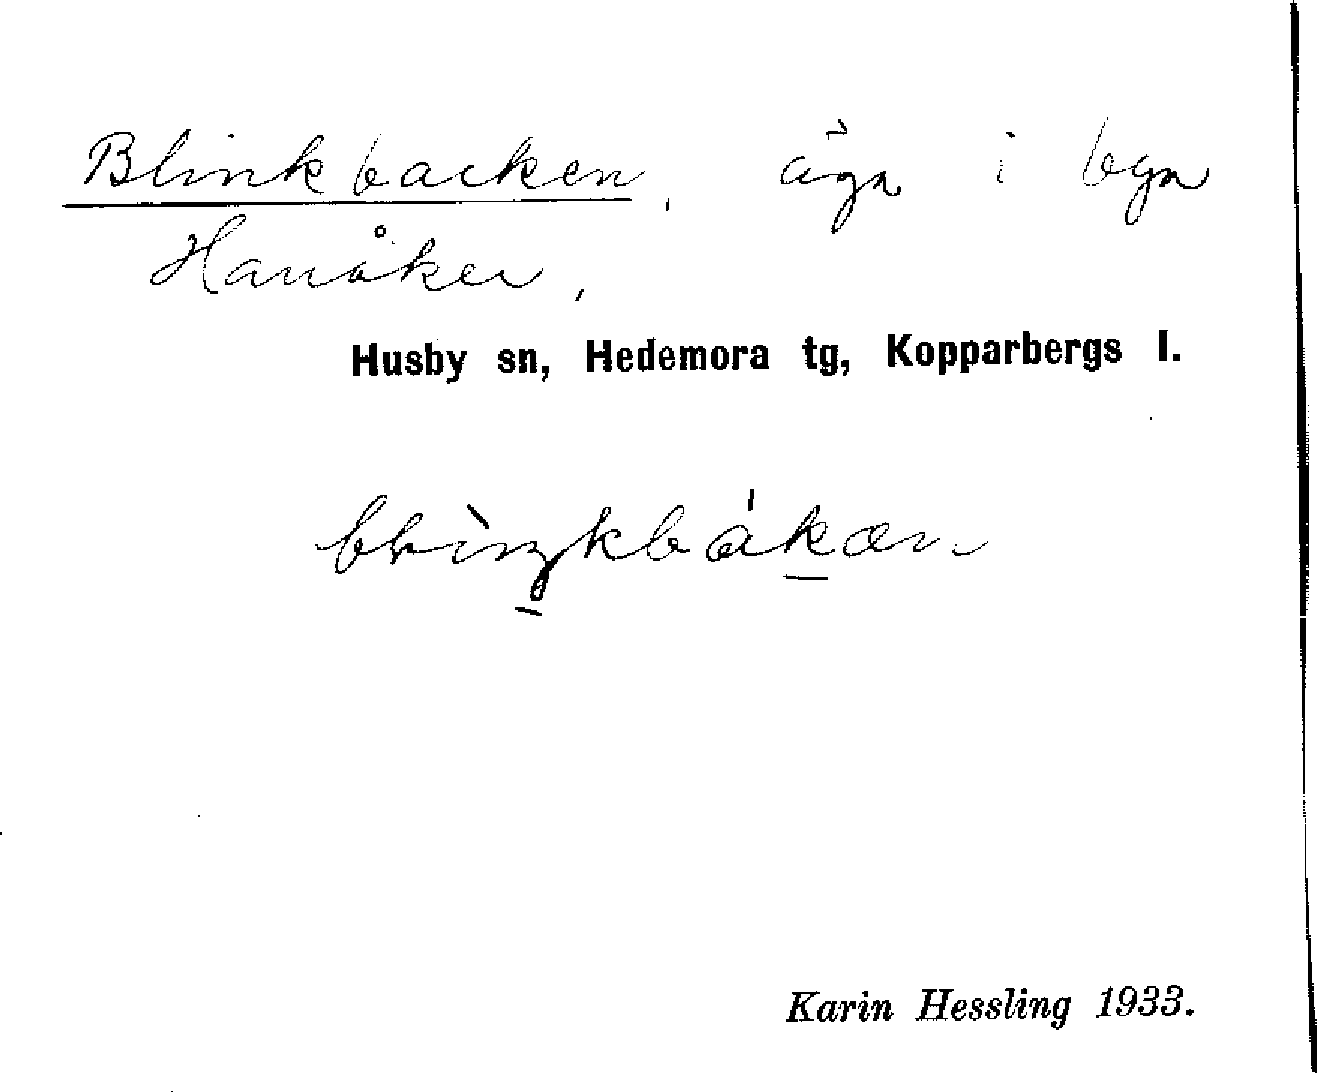 Blinkbacken, ägn i byn
Hanåker,
Husby sn, Hedemora tg, Kopparbergs l.
Karin Hessling 1933.